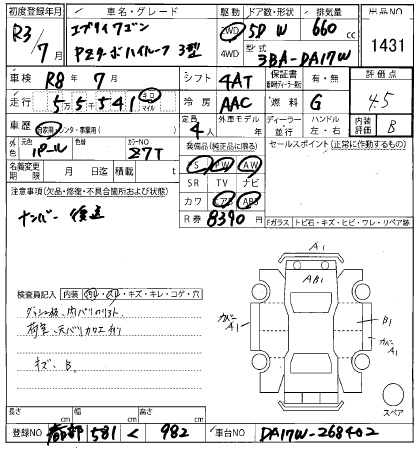 初度登録年月 車名・グレード 駆動 ドア数・形状 排気量 出品NO
R3/7月 エブリイワゴン 2WD 5D W 660 cc 1431
PZターボハイルーフ 3型 4WD 型式 3BA-DA17W
車検 R8年7月 シフト 4AT 保証書 有・無 評価点
走行 55541 キロ マイル 冷房 AAC 燃料 G 4.5
車歴 自家用・レンタ・事業用( ) 定員 4人 外車モデル 年 ディーラー 並行 ハンドル 左・右 内装 B
外色 元色 パール 色替 カラーNO Z7T 装備品(純正品に限る) セールスポイント(正常に作動するもの)
名義変更期限 月 日迄 積載 t S PW AW
注意事項(欠品・修復・不具合箇所および状態) SR TV ナビ
ナンバー後送 カワ エアB ABS
R券 8390円
Fガラス トビ石・キズ・ヒビ・ワレ・リペア跡
A1
AB1
検査員記入 内装 汚レ・スレ・キズ・キレ・コゲ・穴
カバーA1 B1 カバーA1
キズ、B。
スペア
長さ cm 幅 cm 高さ cm
登録NO 京都 581 く 982 車台NO DA17W-268402